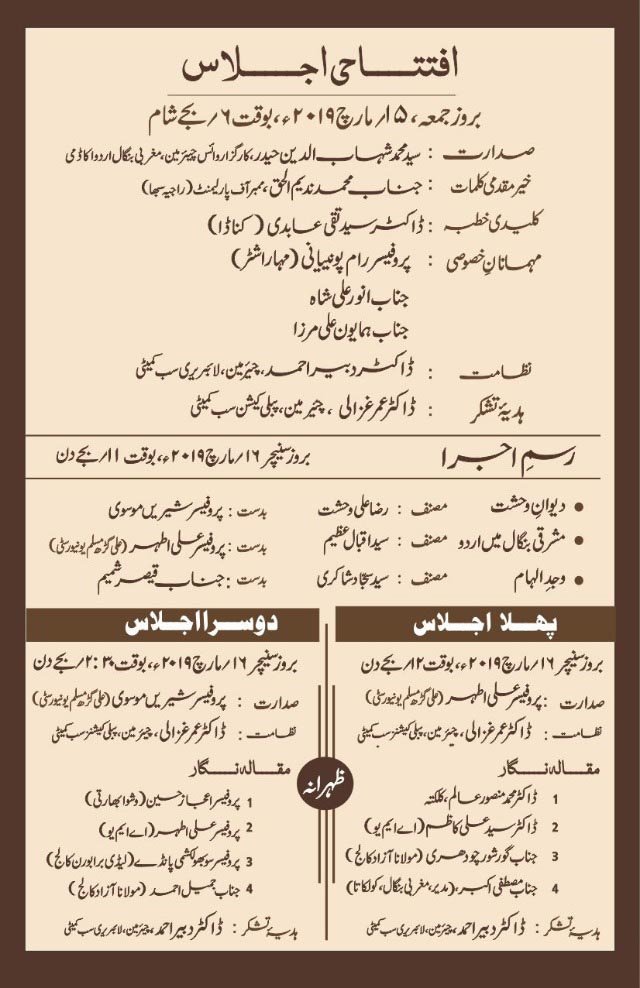 افتتاحی اجلاس
بروز جمعہ، ۱۵؍ مارچ ۲۰۱۹ء، بوقت ۶؍ بجے شام
صدارت : سید محمد شہاب الدین حیدر، کارگزار وائس چیئرمین، مغربی بنگال اردو اکاڈمی
خیر مقدمی کلمات : جناب محمد ندیم الحق، ممبر آف پارلیمنٹ (راجیہ سبھا)
کلیدی خطبہ : ڈاکٹر سید تقی عابدی (کناڈا)
مہمانانِ خصوصی : پروفیسر رام پونیانی (مہاراشٹر)
جناب انور علی شاہ
جناب ہمایوں علی مرزا
نظامت : ڈاکٹر دبیر احمد، چیئرمین، لائبریری سب کمیٹی
ہدیۂ تشکر : ڈاکٹر عمر غزالی، چیئرمین، پبلی کیشن سب کمیٹی
رسمِ اجرا بروز سنیچر ۱۶؍ مارچ ۲۰۱۹ء، بوقت ۱۱؍ بجے دن
● دیوانِ وحشت مصنف : رضا علی وحشت بدست : پروفیسر شیریں موسوی
● مشرقی بنگال میں اردو مصنف : سید اقبال عظیم بدست : پروفیسر علی اطہر (علی گڑھ مسلم یونیورسٹی)
● وجدِ الہام مصنف : سید سجاد شاکری بدست : جناب قیصر شمیم
پہلا اجلاس
بروز سنیچر ۱۶؍ مارچ ۲۰۱۹ء، بوقت ۱۲؍ بجے دن
صدارت : پروفیسر علی اطہر (علی گڑھ مسلم یونیورسٹی)
نظامت : ڈاکٹر عمر غزالی، چیئرمین، پبلی کیشنز سب کمیٹی
مقالہ نگار
1 ڈاکٹر محمد منصور عالم، کلکتہ
2 ڈاکٹر سید علی کاظم (اے ایم یو)
3 جناب گورشور چودھری (مولانا آزاد کالج)
4 جناب مصطفی اکبر، (مدیر، مغربی بنگال، کولکاتا)
ہدیۂ تشکر : ڈاکٹر دبیر احمد، چیئرمین، لائبریری سب کمیٹی
ظہرانہ
دوسرا اجلاس
بروز سنیچر ۱۶؍ مارچ ۲۰۱۹ء، بوقت ۲:۳۰؍ بجے دن
صدارت : پروفیسر شیریں موسوی (علی گڑھ مسلم یونیورسٹی)
نظامت : ڈاکٹر عمر غزالی، چیئرمین، پبلی کیشنز سب کمیٹی
مقالہ نگار
1 پروفیسر اعجاز حسین (وشوا بھارتی)
2 پروفیسر علی اطہر (اے ایم یو)
3 پروفیسر سوبھولکشمی پانڈے (لیڈی برابورن کالج)
4 جناب جمیل احمد (مولانا آزاد کالج)
ہدیۂ تشکر : ڈاکٹر دبیر احمد، چیئرمین، لائبریری سب کمیٹی